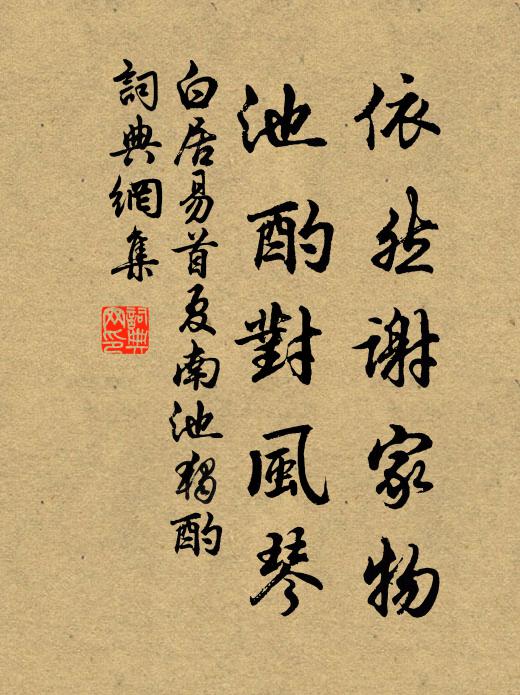 依然謝家物
池酌對風琴
白居易首夏南池獨酌
詞典網集
詞典網印